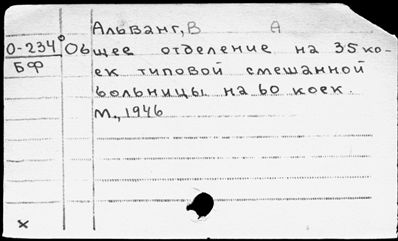 Альванг, В А
О-234° Общее отделение на 35 ко-
БФ ек типовой смешанной
больницы на 60 коек.
М., 1946
х